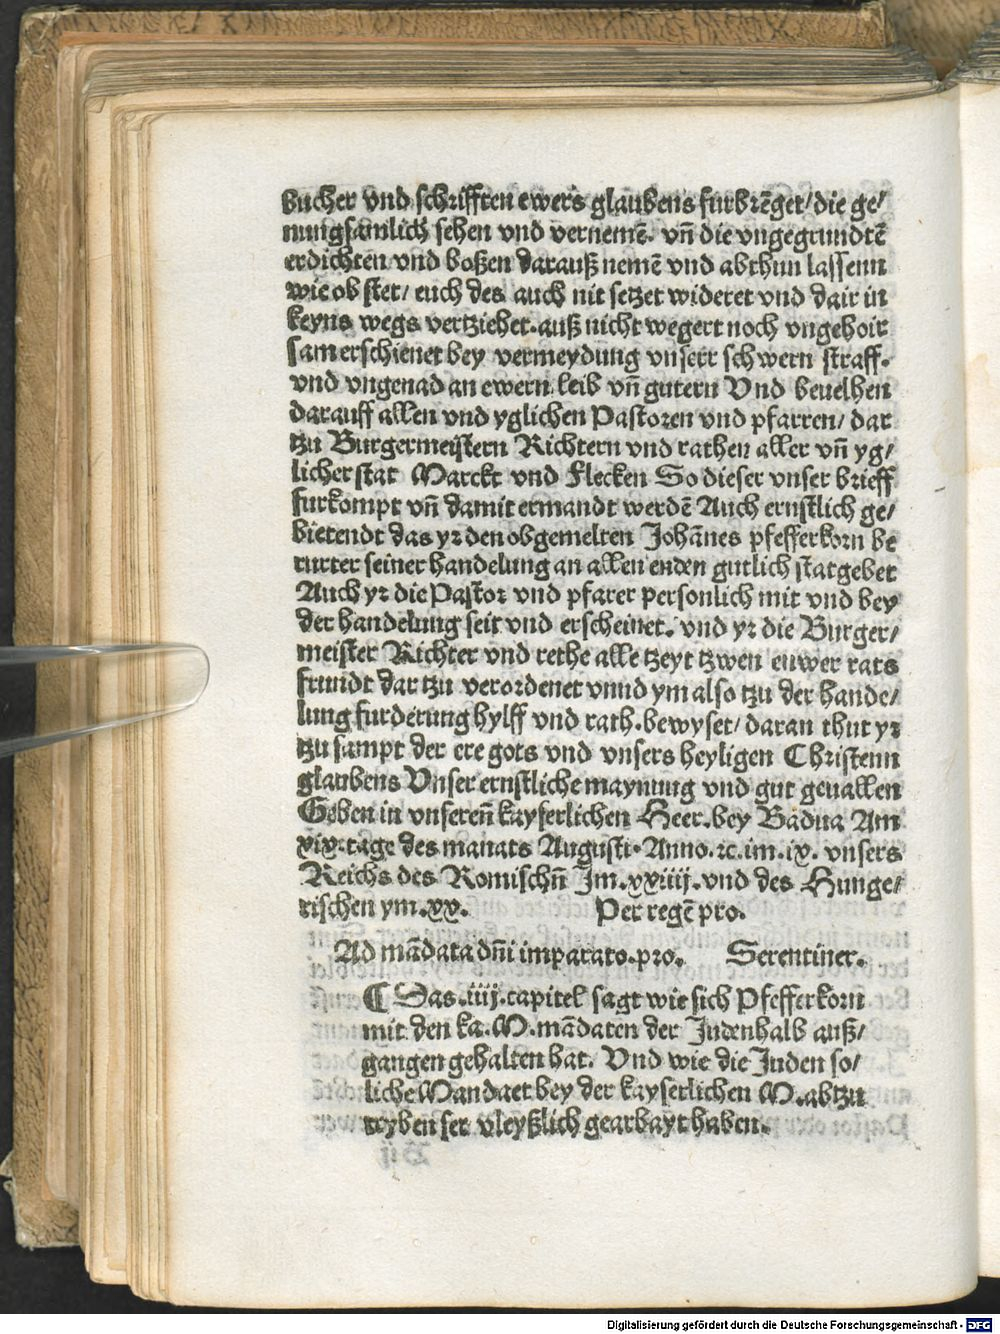 bucher vnd schrifften ewers glaubens furbrēget/ die ge/
nungsamlich sehen vnd vernemē. vñ die vngegrundtē
erdichten vnd boßen darauß nemē vnd abthun lassenn
wie ob stet/ euch des auch nit setzet wideret vnd dair in
keyns wegs vertziehet. auß nicht wegert noch vngehoir
sam erschienet bey vermeydung vnserr schwern straff.
vnd vngenad an ewern leib vñ gutern Vnd beuelhen
darauff allen vnd yglichen Pastoren vnd pfarren/ dar
tzu Burgermeistern Richtern vnd rathen aller vñ yg/
licher stat Marckt vnd Flecken So dieser vnser brieff
furkompt vñ damit ermandt werdē Auch ernstlich ge/
bietendt das yr den obgemelten Johānes pfefferkorn be
rurter seiner handelung an allen enden gutlich statgebet
Auch yr die Pastor vnd pfarer personlich mit vnd bey
der handelung seit vnd erscheinet. vnd yr die Burger/
meister Richter vnd rethe alle tzeyt tzwen euwer rats
frundt dar tzu verordenet vnnd ym also tzu der hande/
lung furderung hylff vnd rath. bewyset/ daran thut yr
tzu sampt der ere gots vnd vnsers heyligen Christenn
glaubens Vnser ernstliche maynung vnd gut geuallen
Geben in vnsereñ kayserlichen Heer. bey Badua Am
xix. tage des manats Augusti. Anno. ꝛc. im. ix. vnsers
Reichs des Romischñ Jm. xxiiij. vnd des Hunge/
rischen ym. xx. Per regē pro.
Ad mādata dñi imparato. pro. Serentiner.
¶ Das .iiij. capitel sagt wie sich Pfefferkorn
mit den ka. M. mādaten der Judenhalb auß/
gangen gehalten hat. Vnd wie die Juden so/
liche Mandaet bey der kayserlichen M. abtzu
tryben ser vleyßlich gearbayt haben.
Digitalisierung gefördert durch die Deutsche Forschungsgemeinschaft - DFG